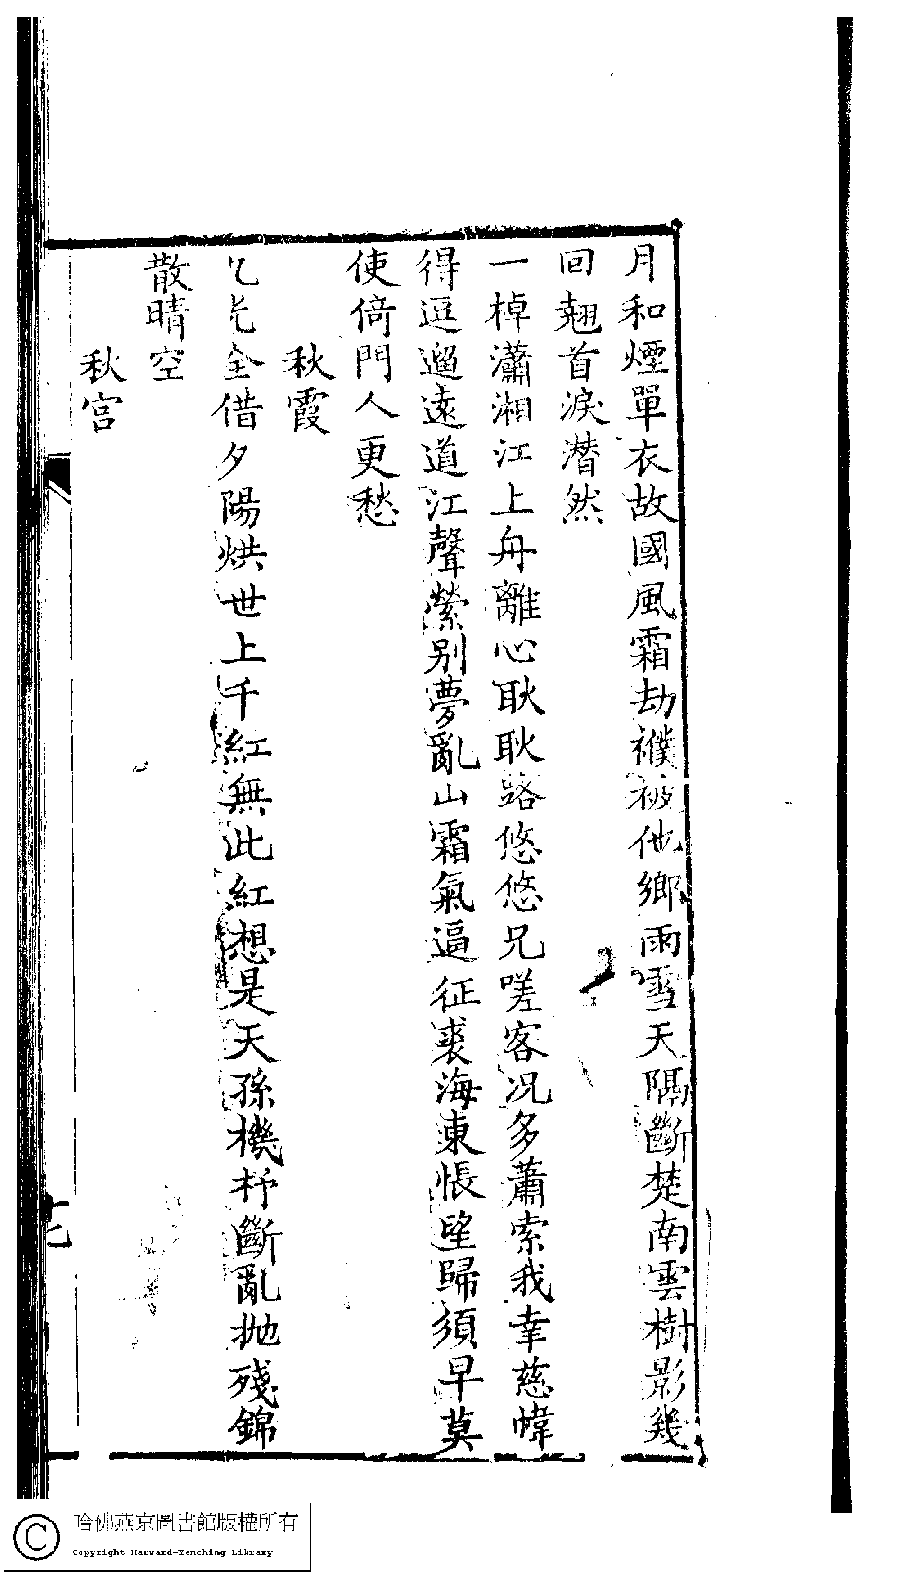 月和煙單衣故國風霜劫襆被他鄉雨雪天隅斷楚南雲樹影幾
回翹首淚潸然
一棹瀟湘江上舟離心耿耿路悠悠兄嗟客况多蕭索我幸慈幃
得逗遛遠道江聲縈别夢亂山霜氣逼征裘海東悵望歸須早莫
使倚門人更愁
秋霞
光全借夕陽烘世上千紅無此紅想是天孫機杼斷亂拋殘錦
散晴空
秋宫
哈佛燕京圖書館版權所有
Copyright Harvard-Yenching Library